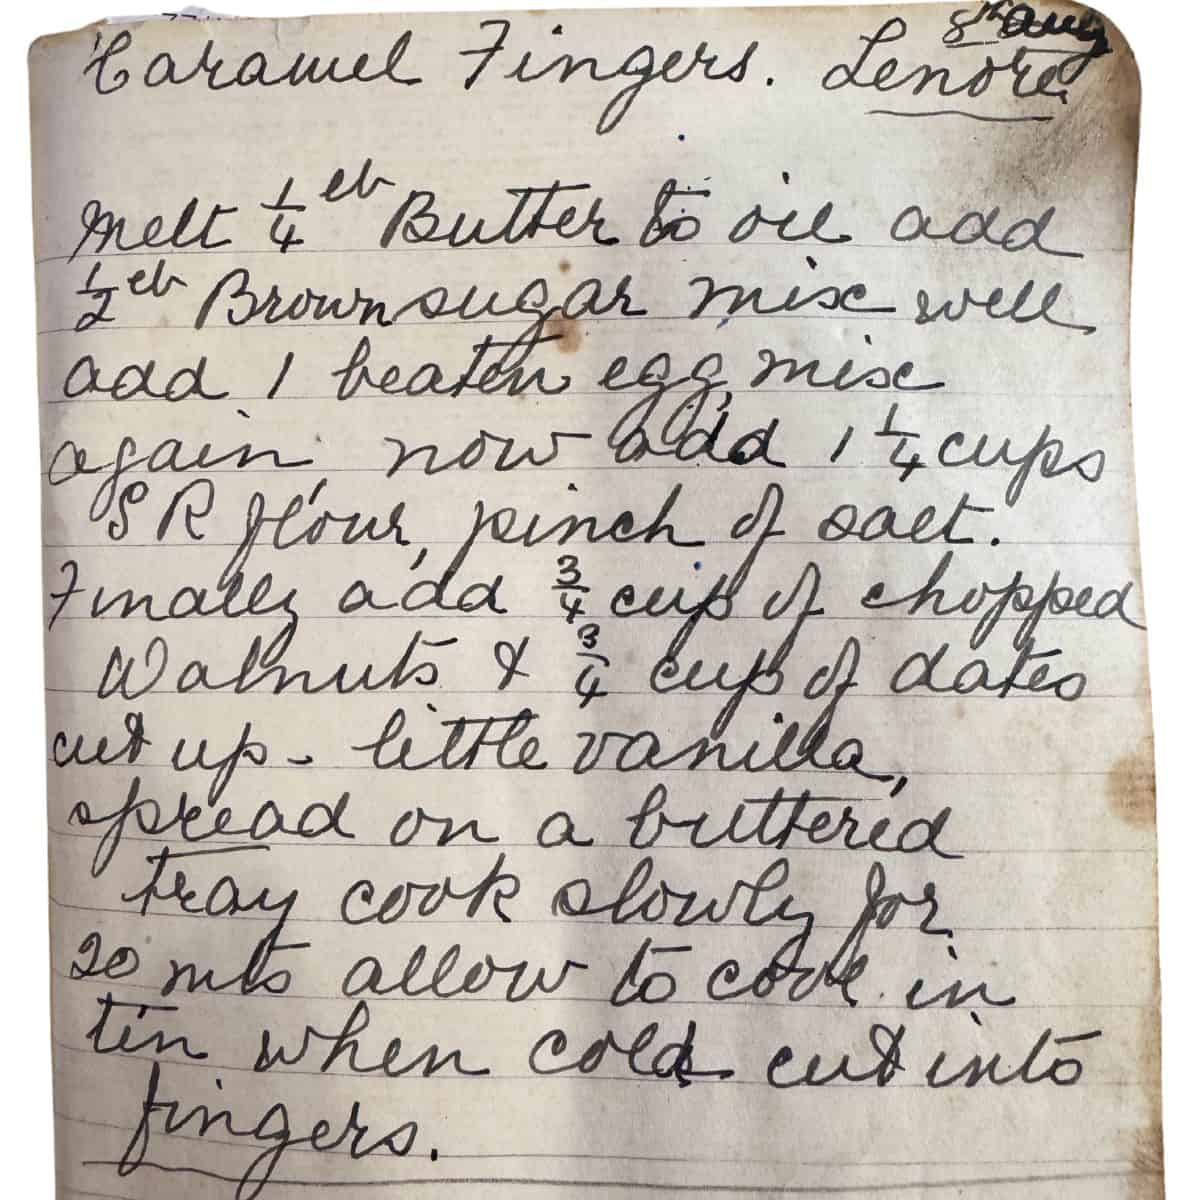 8th Aug
Caramel Fingers. Lenore
Melt 1/4 lb Butter to oil add
1/2 lb Brown sugar mix well
add 1 beaten egg, mix
again, now add 1 1/4 cups
S R flour, pinch of salt.
Finally add 3/4 cup of chopped
Walnuts & 3/4 cup of dates
cut up - little vanilla,
spread on a buttered
tray cook slowly for
20 mts allow to cool in
tin when cold cut into
fingers.